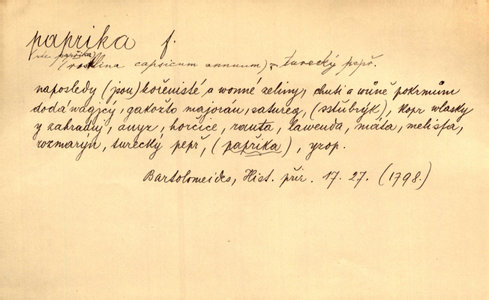 paprika f.
(rostlina capsicum annuum) turecký pepř.
naposledy (jsou) kořenisté a wonné zeliny, chuti a wůně pokrmům
dodáwagjcý, gakožto majorán, satureg, kopr wlasky
y zahradnj, anyz, horčice, rauta, lawenda, máta, melissa,
rozmaryn, turecky pepř, (paprika), yzop.
Bartolomeides, Hist. přir. 17. 27. (1798.)